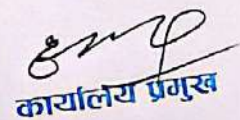 कार्यालय प्रमुख